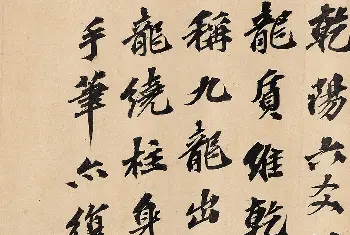 乾陽六爻
龍質維乾
稱九龍出
龍繞柱身
手筆亦復